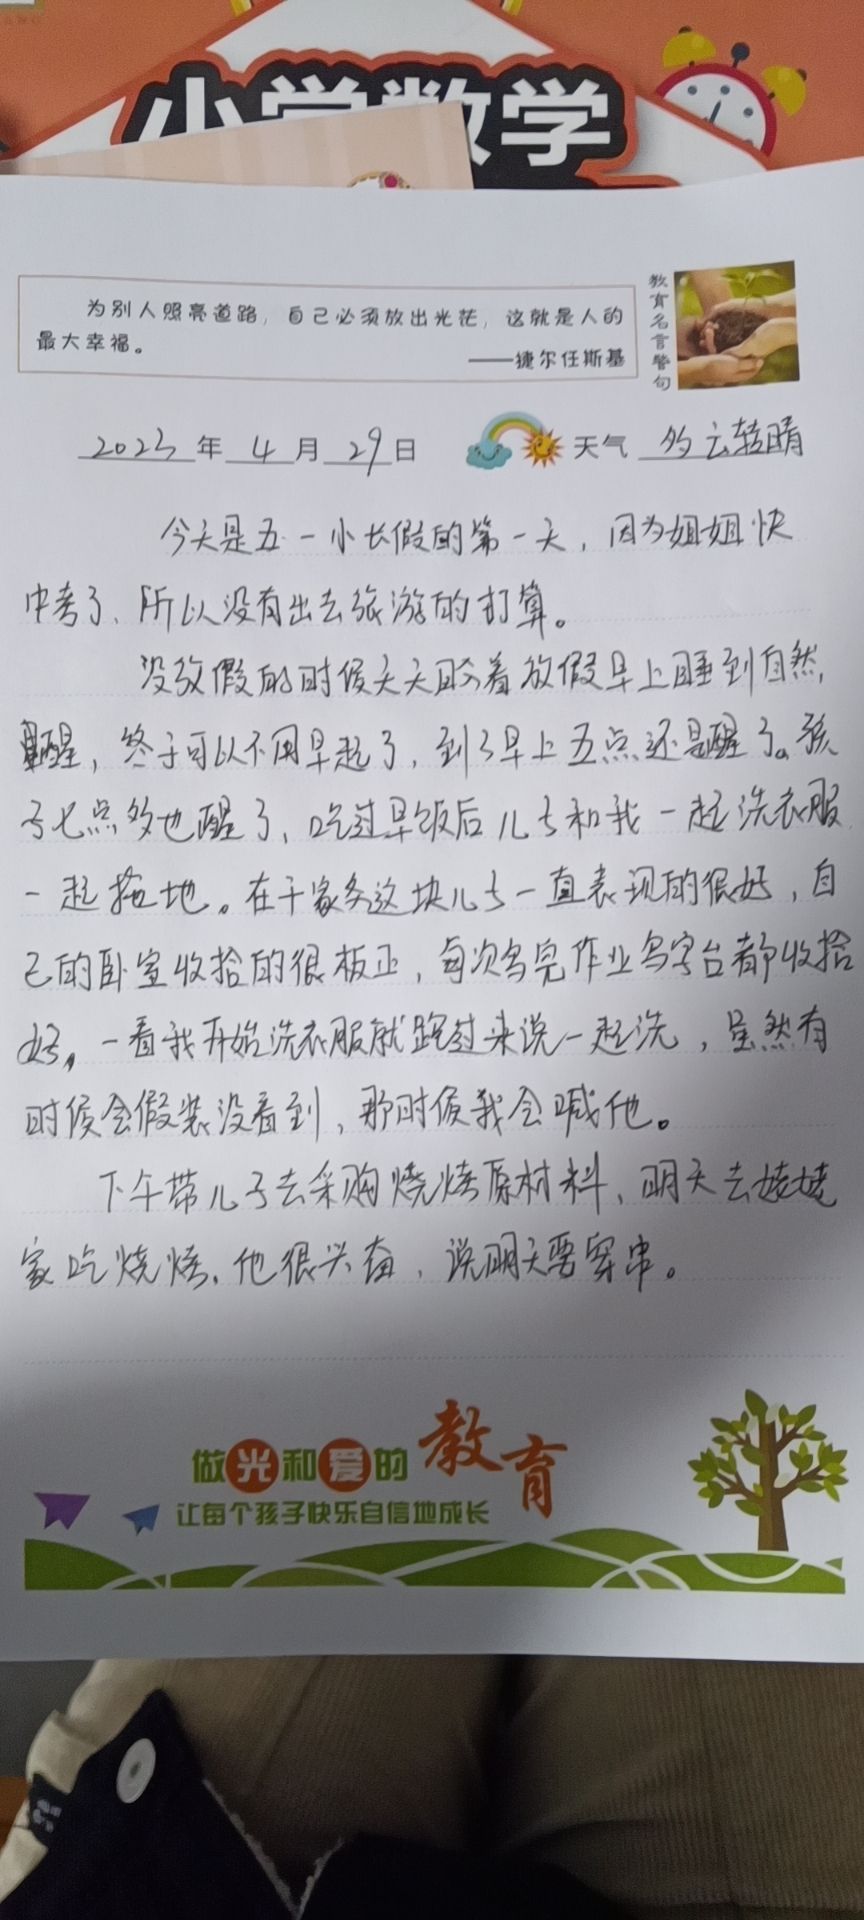 小学数学
为别人照亮道路，自己必须放出光芒，这就是人的
最大幸福。
——捷尔任斯基
教育名言警句
2023年4月29日 天气 多云转晴
今天是五一小长假的第一天，因为姐姐快
中考了、所以没有出去旅游的打算。
没放假的时候天天盼着放假早上睡到自然
醒，终于可以不用早起了，到了早上五点还是醒了。孩
子七点多也醒了、吃过早饭后儿子和我一起洗衣服
一起拖地。在干家务这块儿子一直表现的很好，自
己的卧室收拾的很板正，每次写完作业写字台都收拾
好。一看我开始洗衣服就跑过来说一起洗，虽然有
时候会假装没看到，那时候我会喊他。
下午带儿子去采购烧烤原材料、明天去姥姥
家吃烧烤.他很兴奋，说明天要穿串。
做光和爱的教育
让每个孩子快乐自信地成长